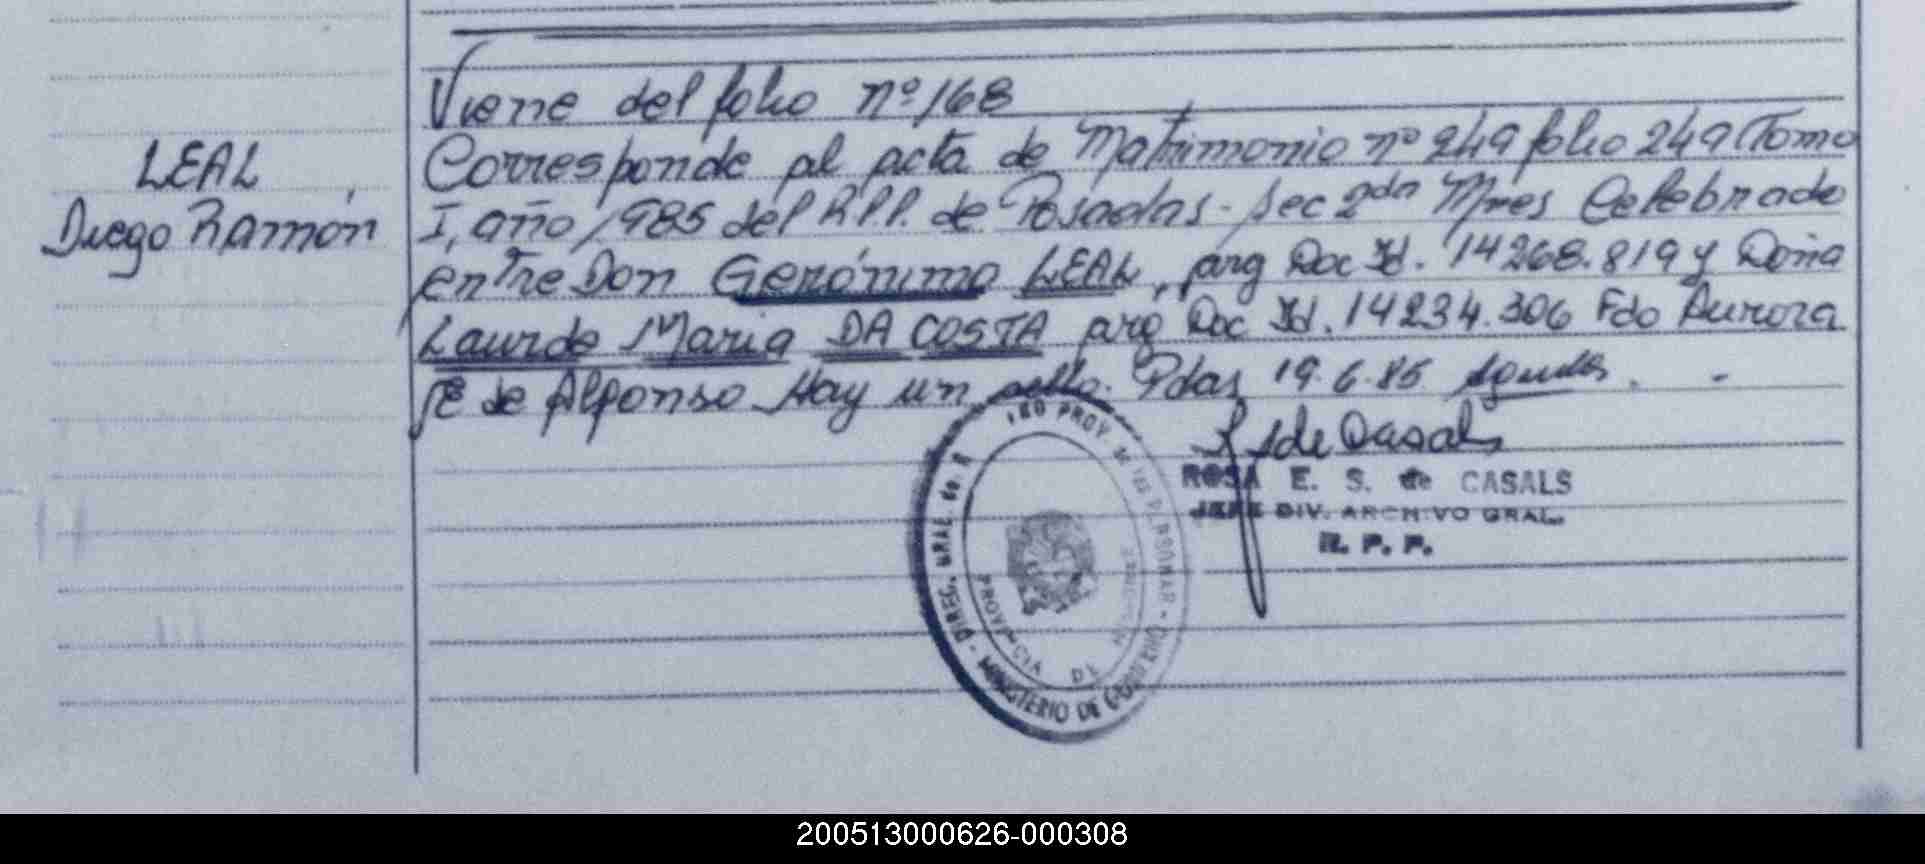 Viene del folio nº 168
LEAL
Diego Ramón
Corresponde al acta de Matrimonio nº 249 folio 249 Tomo
I, año 1985 del R.P.P. de Posadas - Sec 2da Mnes Celebrado
entre Don Gerónimo LEAL, arg Doc Id. 14268.819 y Doña
Laurde Maria DA COSTA arg Doc Id. 14234.306 Fdo Aurora
de Alfonso Hay un sello. Pdas 19.6.85
de Casals
ROSA E. S. de CASALS
JEFE DIV. ARCHIVO GRAL.
R. P. P.
PROVINCIA DE MISIONES
MINISTERIO DE GOBIERNO
200513000626-000308